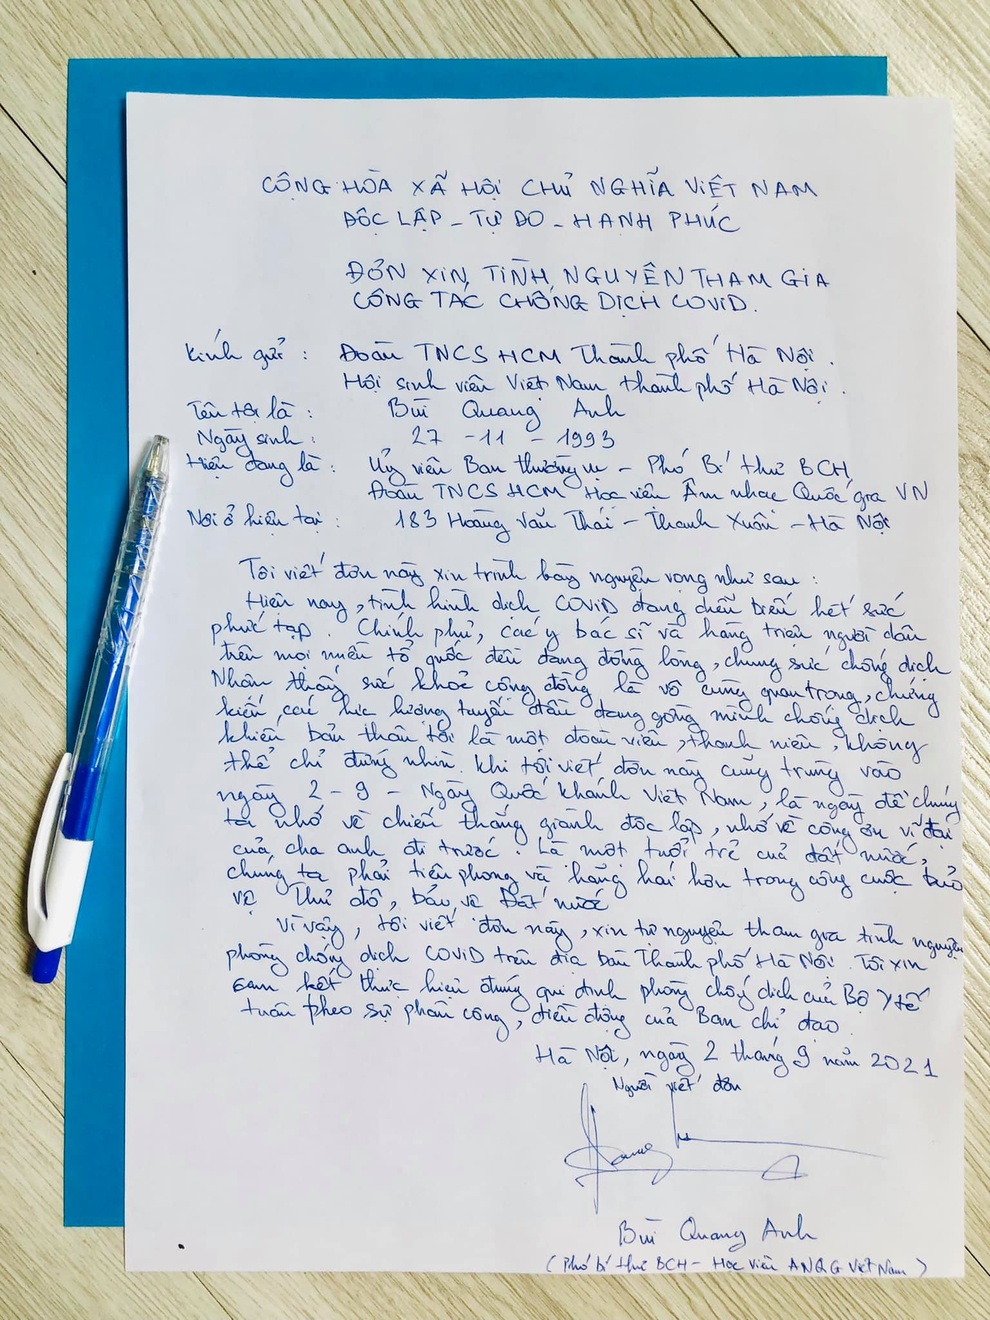 CỘNG HÒA XÃ HỘI CHỦ NGHĨA VIỆT NAM
ĐỘC LẬP - TỰ DO - HẠNH PHÚC
ĐƠN XIN TÌNH NGUYỆN THAM GIA
CÔNG TÁC CHỐNG DỊCH COVID.
Kính gửi : Đoàn TNCS HCM Thành phố Hà Nội.
Hội sinh viên Việt Nam thành phố Hà Nội.
Tên tôi là : Bùi Quang Anh
Ngày sinh : 27 - 11 - 1993
Hiện đang là : Ủy viên Ban thường vụ - Phó Bí thư BCH
Đoàn TNCS HCM Học viện Âm nhạc Quốc gia VN
Nơi ở hiện tại : 183 Hoàng Văn Thái - Thanh Xuân - Hà Nội
Tôi viết đơn này xin trình bày nguyện vọng như sau :
Hiện nay, tình hình dịch COVID đang diễn biến hết sức
phức tạp. Chính phủ, các y bác sĩ và hàng triệu người dân
trên mọi miền tổ quốc đều đang đồng lòng, chung sức chống dịch
Nhận thấy sức khoẻ cộng đồng là vô cùng quan trọng, chứng
kiến các lực lượng tuyến đầu đang gồng mình chống dịch
khiến bản thân tôi là một đoàn viên, thanh niên, không
thể chỉ đứng nhìn. Khi tôi viết đơn này cũng trùng vào
ngày 2 - 9 - Ngày Quốc khánh Việt Nam, là ngày để chúng
ta nhớ về chiến thắng giành độc lập, nhớ về công ơn vĩ đại
của cha anh đi trước. Là một tuổi trẻ của đất nước,
chúng ta phải tiên phong và hăng hái hơn trong công cuộc bảo
vệ Thủ đô, bảo vệ Đất nước
Vì vậy, tôi viết đơn này, xin tự nguyện tham gia tình nguyện
phòng chống dịch COVID trên địa bàn Thành phố Hà Nội. Tôi xin
cam kết thực hiện đúng qui định phòng chống dịch của Bộ Y tế
tuân theo sự phân công, điều động của Ban chỉ đạo.
Hà Nội, ngày 2 tháng 9 năm 2021
Người viết đơn
Bùi Quang Anh
(Phó bí thư BCH - Học viện ANQG Việt Nam)